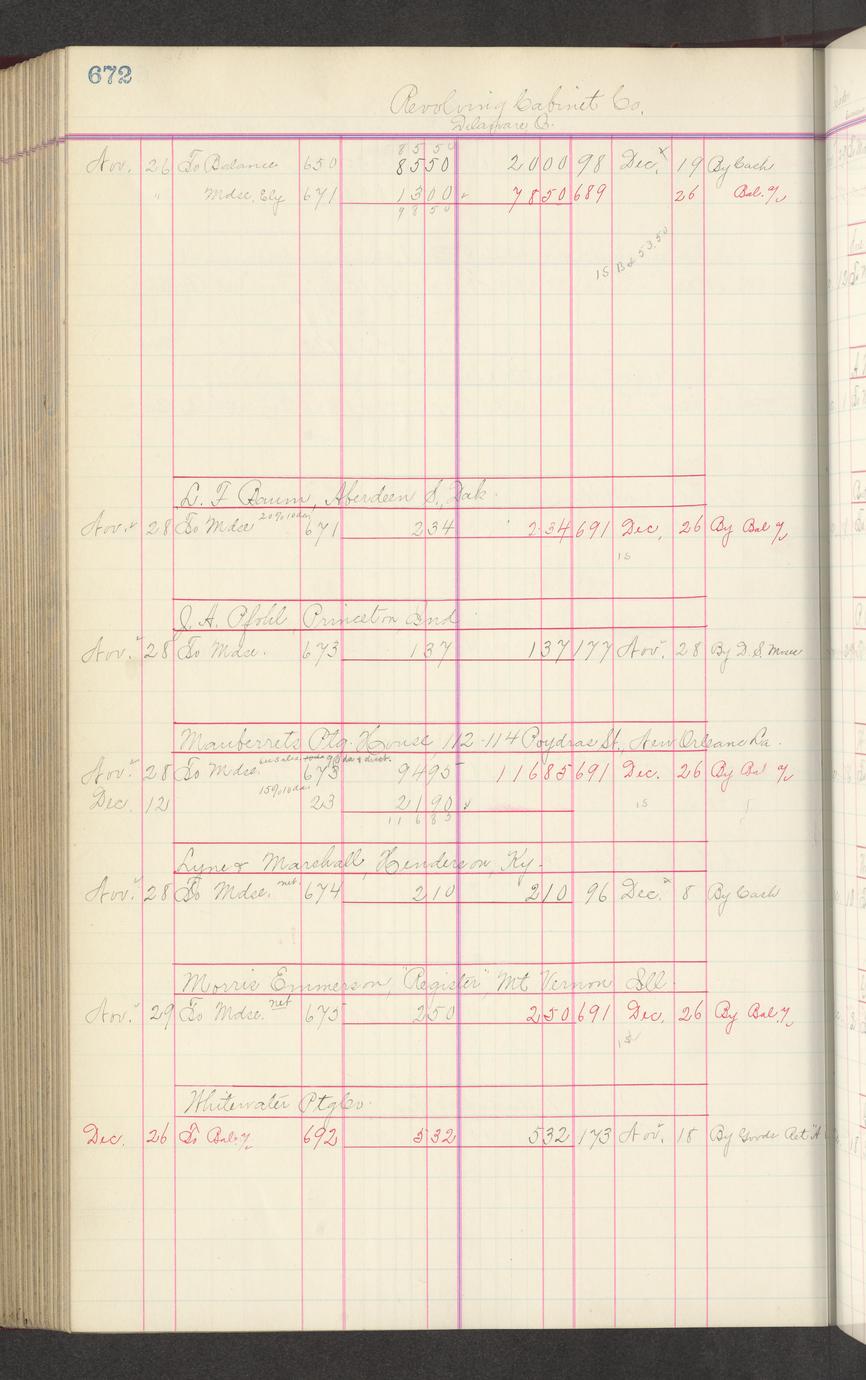 672
Revolving Cabinet Co.
Delaware, O.
8550
Nov. 26 To Balance 650 8550 2000 98 Dec. 19 By Cash
" Mdse, Ely 671 1300 7850 689 26 Bal. %
9850
15 B of 53.50
L. F Baum, Aberdeen S. Dak.
20% 10 da
Nov. 28 To Mdse 671 234 234 691 Dec. 26 By Bal %
15
J. A. Pfohl, Princeton, Ind
Nov. 28 To Mdse. 673 137 137 177 Nov. 28 By D. S. Mouse
Mauberrets Ptg. House 112-114 Poydras St., New Orleans La.
Nov. 28 To Mdse. 673 9495 11685 691 Dec. 26 By Bal %
15% 10 da
Dec. 12 23 2190 15
11685
Lyne & Marshall, Henderson Ky.
Nov. 28 To Mdse. net 674 210 210 96 Dec. 8 By Cash
Morris Emmerson, "Register" Mt Vernon Ill.
Nov. 29 To Mdse. net 675 250 250 691 Dec. 26 By Bal. %
15
Whitewater Ptg Co.
Dec. 26 To Bal. % 692 532 532 173 Nov. 18 By Goods Ret'd